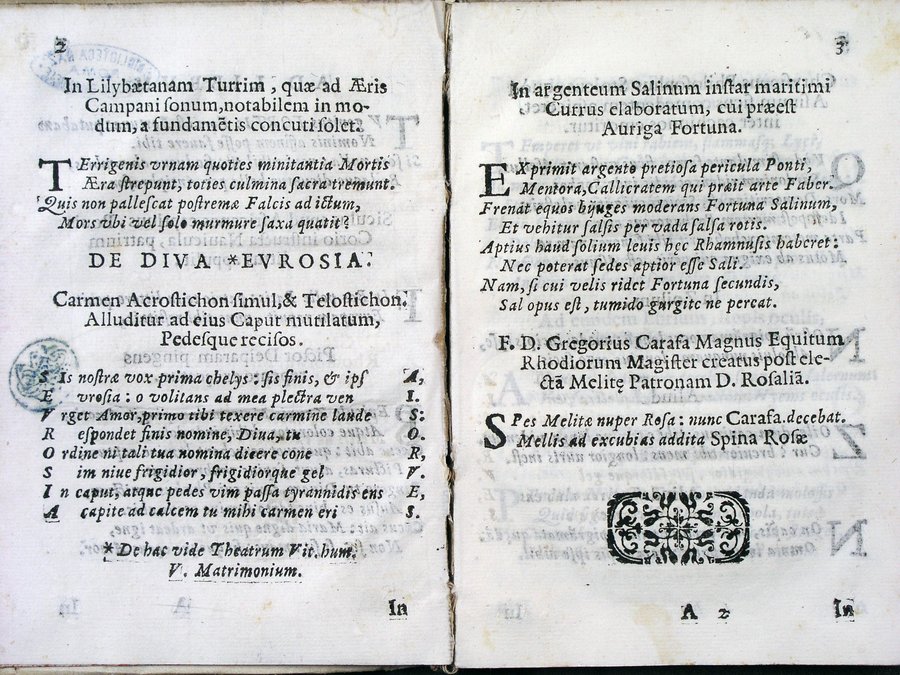 2
In Lilybætanam Turrim, quæ ad Æris
Campani sonum, notabilem in mo-
dum, a fundamẽtis concuti solet.
TErrigenis vrnam quoties minitantia Mortis
Æra strepunt, toties culmina sacra tremunt.
Quis non pallescat postremæ Falcis ad ictum,
Mors vbi vel solo murmure saxa quatit?
DE DIVA *EVROSIA.
Carmen Acrostichon simul, & Telostichon.
Alluditur ad eius Caput mutilatum,
Pedesque recisos.
S Is nostræ vox prima chelys: sis finis, & ips A,
E vrosia: o volitans ad mea plectra ven I.
V rget Amor, primo tibi texere carmine laude S:
R espondet finis nomine, Diua, tu O.
O rdine ni tali tua nomina dicere cone R,
S im niue frigidior, frigidiorque gel V.
I n caput, atque pedes vim passa tyrannidis ens E,
A capite ad calcem tu mihi carmen eri S.
* De hac vide Theatrum Vit. hum.
V. Matrimonium.
In
3
In argenteum Salinum instar maritimi
Currus elaboratum, cui præest
Auriga Fortuna.
EXprimit argento pretiosa pericula Ponti,
Mentora, Callicratem qui præit arte Faber.
Frenat equos bijuges moderans Fortuna Salinum,
Et vehitur salsis per vada salsa rotis.
Aptius haud solium leuis hęc Rhamnusis haberet:
Nec poterat sedes aptior esse Sali.
Nam, si cui velis ridet Fortuna secundis,
Sal opus est, tumido gurgite ne pereat.
F. D. Gregorius Carafa Magnus Equitum
Rhodiorum Magister creatus post ele-
ctã Melitę Patronam D. Rosaliã.
SPes Melitæ nuper Rosa: nunc Carafa decebat.
Mellis ad excubias addita Spina Rosæ
A 2
In